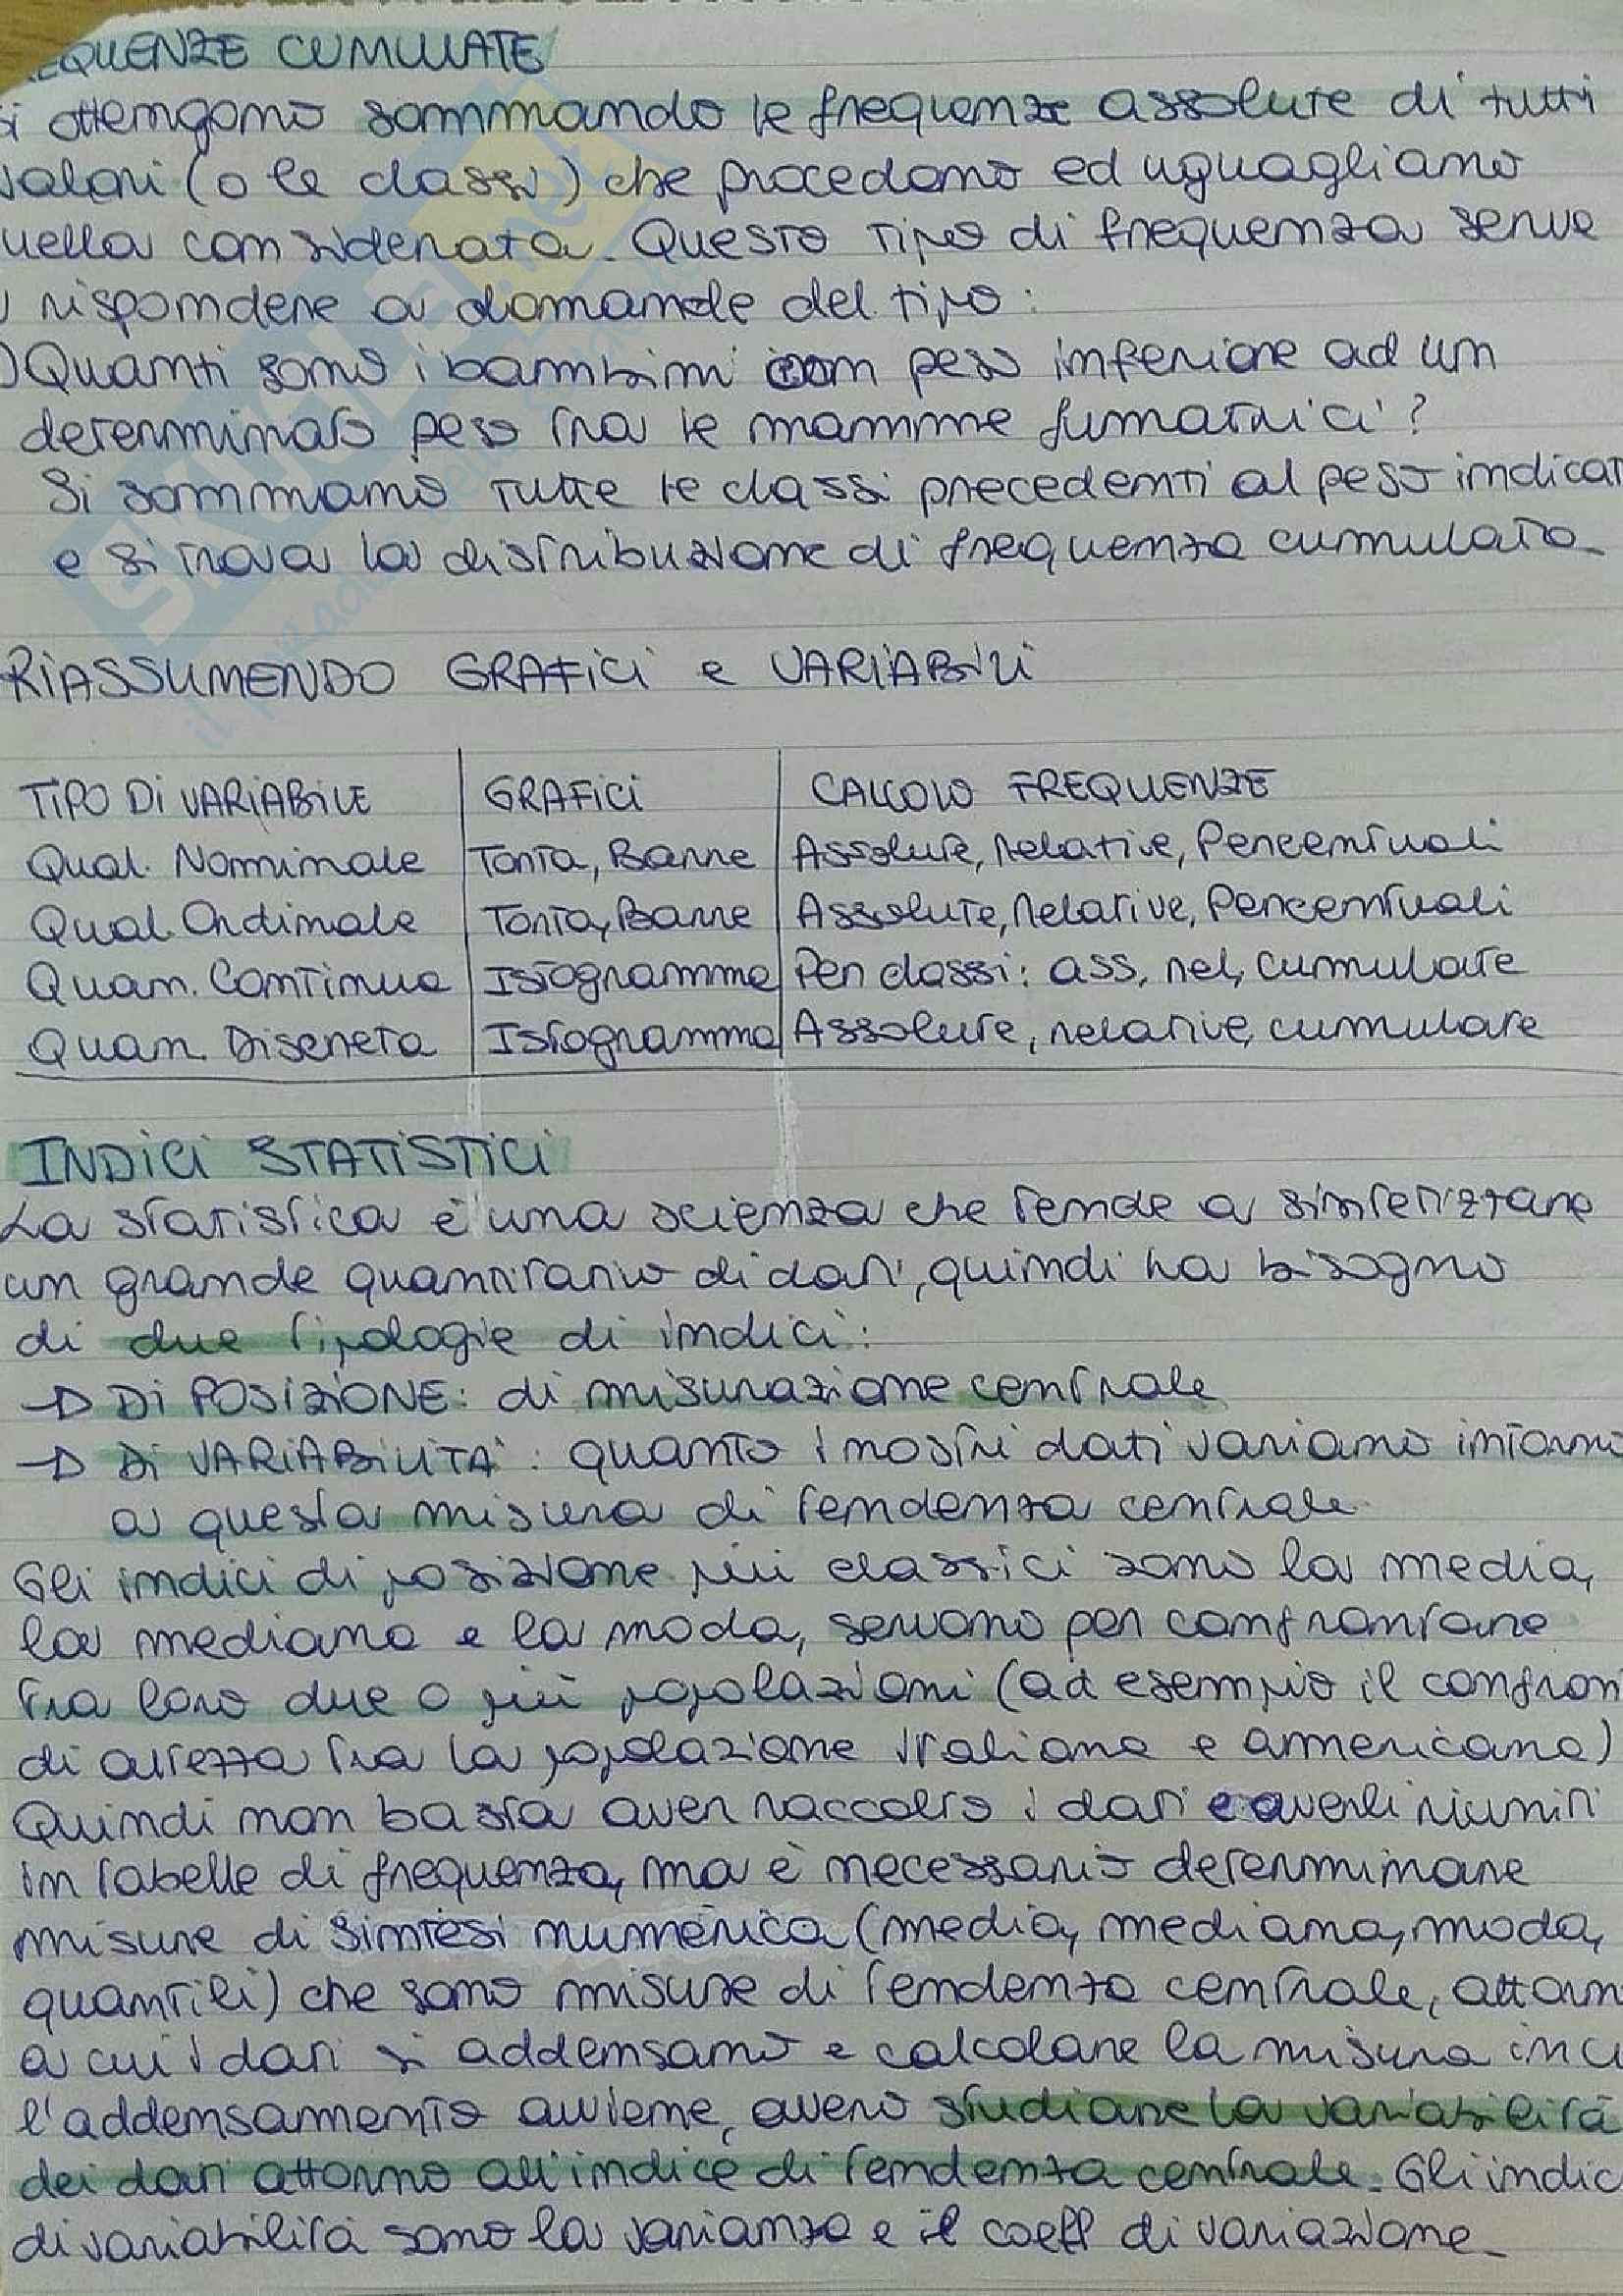 EQUENZE CUMULATE
si ottengono sommando le frequenze assolute di tutti
valori (o le classi) che procedono ed uguagliano
uella considerata. Questo tipo di frequenza serve
rispondere a domande del tipo:
Quanti sono i bambini con peso inferiore ad un
determinato peso tra le mamme fumatrici?
Si sommiamo tutte le classi precedenti al peso indicat
e si trova la distribuzione di frequenza cumulata.
RIASSUMENDO GRAFICI e VARIABILI
TIPO DI VARIABILE GRAFICI CALCOLO FREQUENZE
Qual. Nominale Torta, Barre Assolute, relative, Percentuali
Qual. Ordinale Torta, Barre Assolute, relative, Percentuali
Quan. Continua Istogramma Per classi: ass, rel, cumulate
Quan. Discreta Istogramma Assolute, relative, cumulate
INDICI STATISTICI
La statistica è una scienza che tende a sintetizzare
un grande quantitativo di dati, quindi ha bisogno
di due tipologie di indici:
→ DI POSIZIONE: di misurazione centrale
→ DI VARIABILITÀ: quanto i nostri dati variano intorno
a questa misura di tendenza centrale.
Gli indici di posizione più classici sono la media,
la mediana e la moda, servono per confrontare
tra loro due o più popolazioni (ad esempio il confron
di altezza tra la popolazione italiana e americana)
Quindi non basta aver raccolto i dati e averli riuniti
in tabelle di frequenza, ma è necessario determinare
misure di sintesi numerica (media, mediana, moda,
quantili) che sono misure di tendenza centrale, attorn
a cui i dati si addensano e calcolare la misura in cui
l'addensamento avviene, avero studiare la variabilità
dei dati attorno all'indice di tendenza centrale. Gli indic
di variabilità sono la varianza e il coeff di variazione.